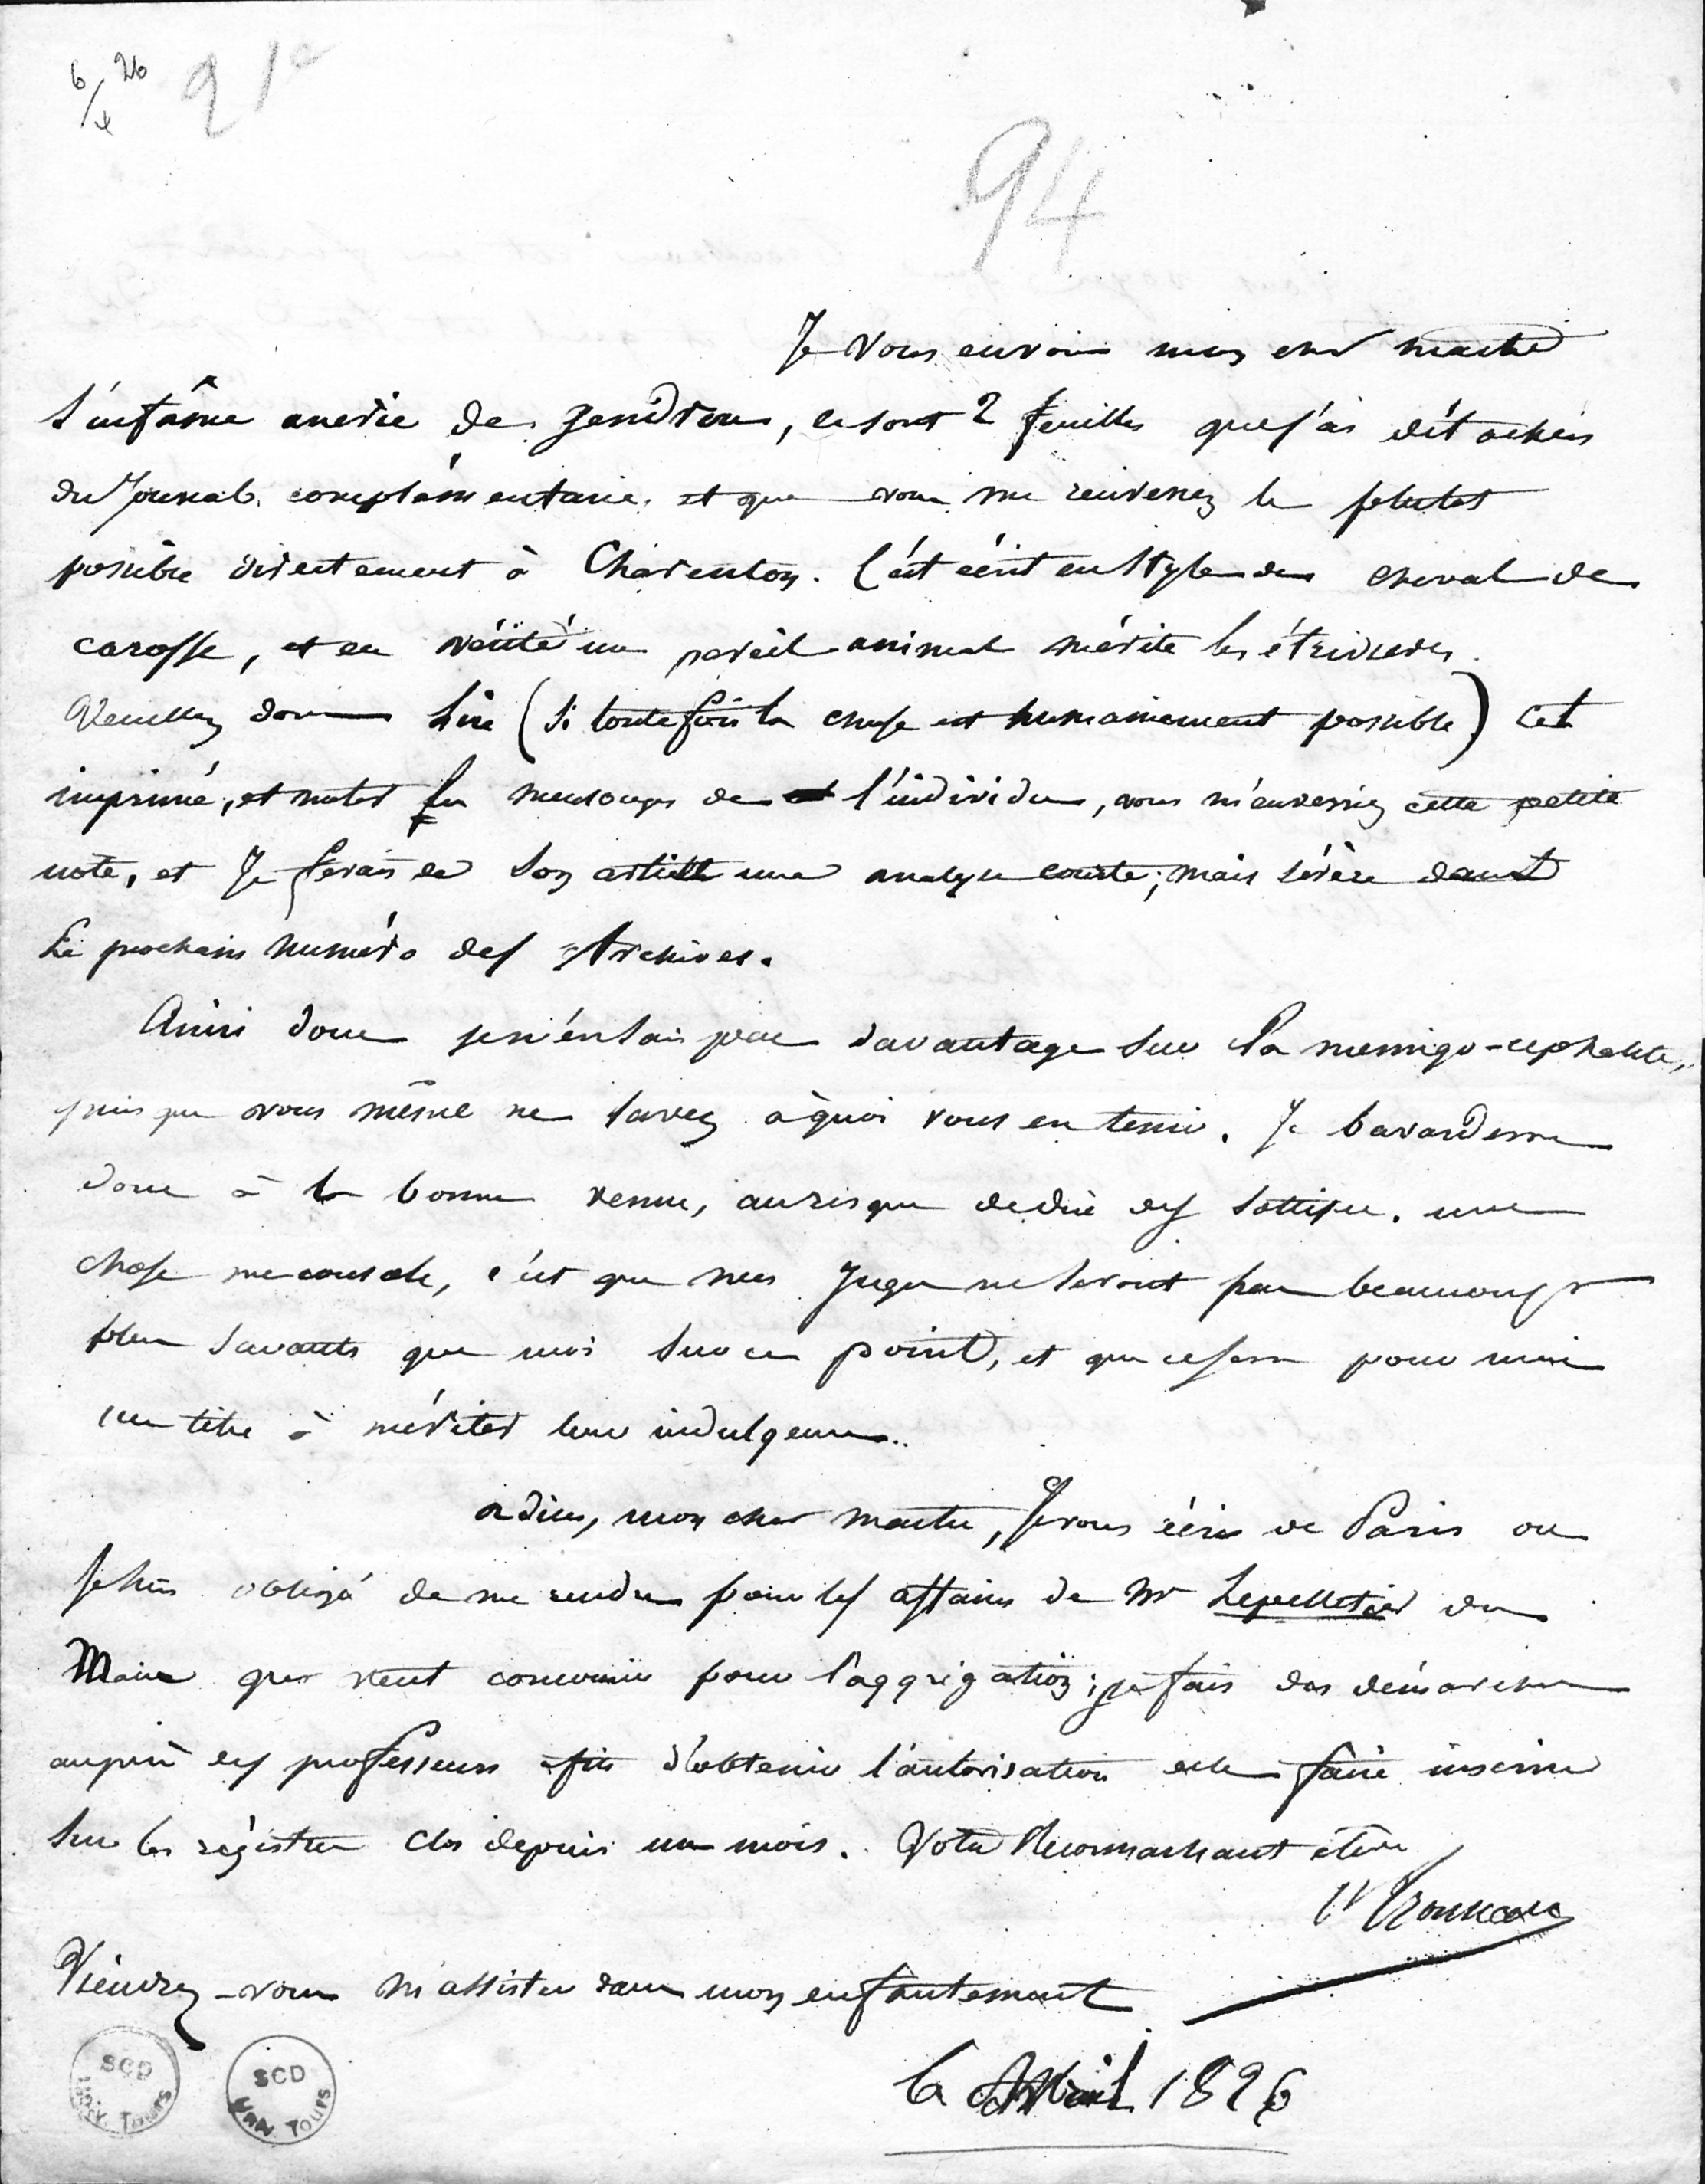 6/4 26
21e
94
Je vous envoie mon cher maitre
l'infâme anerie de gendron, ce sont 2 feuilles que j'ai détachées
du Journal complémentaire, et que vous me renverrez le plutot
possible directement à Charenton. C'est écrit en style de cheval de
carosse, et en vérité un pareil animal mérite les étrivières.
Veuillez donc lire (si toutefois la chose est humainement possible) cet
imprimé, et noter les mensonges de l'individu, vous m'enverriez cette petite
note, et Je ferais de son article une analyse courte, mais sévère dans
le prochain numéro des Archives.
Ainsi donc je n'en sais pas davantage sur la meningo-cephalite,
puisque vous même ne savez à quoi vous en tenir. Je bavarderai
donc à la bonne venue, au risque de dire des sottises. une
chose me console, c'est que mes Juges ne seront pas beaucoup
plus savants que moi sur ce point, et que ce sera pour moi
un titre à mériter leur indulgence..
adieu, mon cher maitre, Je vous écris de Paris ou
Je suis obligé de me rendre pour les affaires de Mr Lepelletier du
Mans qui veut concourir pour l'aggrégation; je fais des démarches
auprès des professeurs afin d'obtenir l'autorisation de le faire inscrire
sur les régistres clos depuis un mois. Votre Reconnaissant élève
Trousseau
Viendrez-vous m'assister dans mon enfantement
6 Avril 1826
SCD
UNIV. TOURS
SCD
UNIV. TOURS